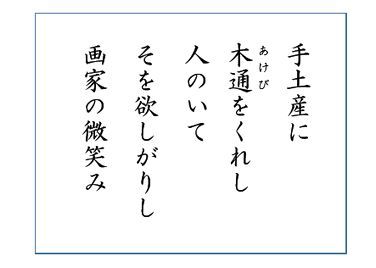 手土産に
木通をくれし
あけび
人のいて
そを欲しがりし
画家の微笑み